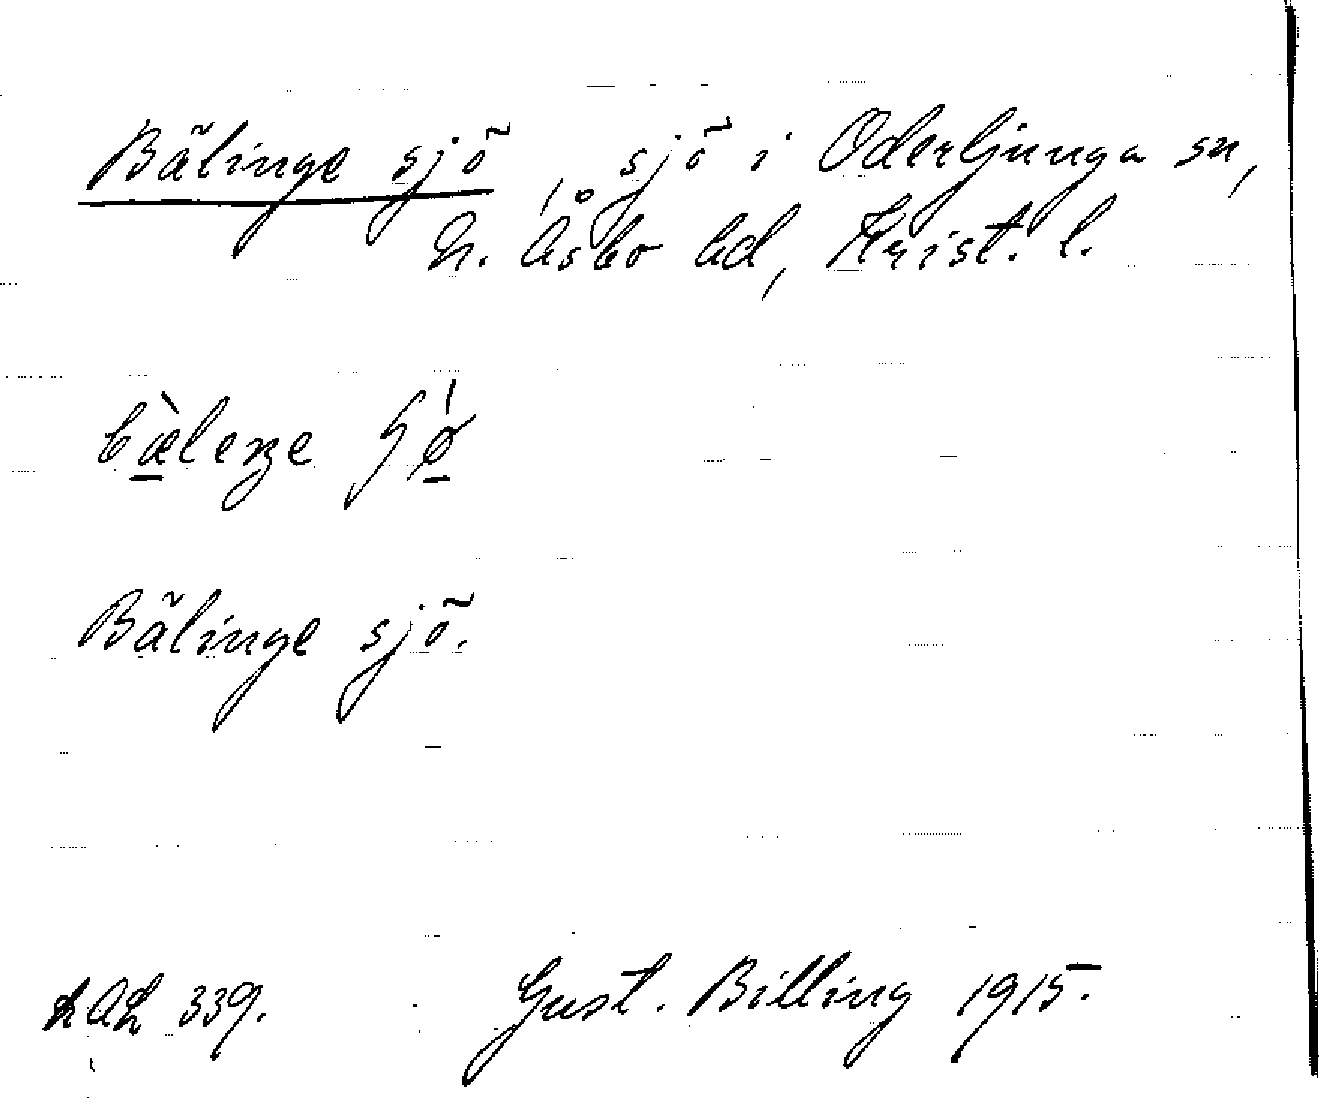 Bälinge sjö, sjö i Oderljunga sn,
N. Åsbo hd, Krist. l.
bæ̀leŋe ʃǿ
Bälinge sjö.
339.
Gust. Billing 1915.